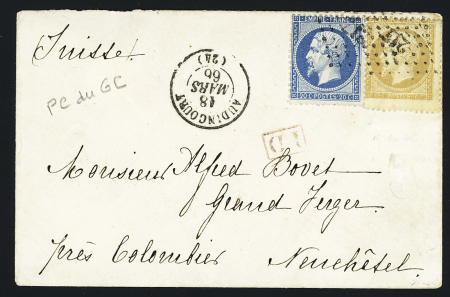 Suisse.
EMPIRE FRANC
20 C POSTES 20 C
AUDINCOURT
18
MARS
66
(24)
PC du GC
P.D
Monsieur Alfred Bovet
Grand Verger
près Colombier Neuchâtel.